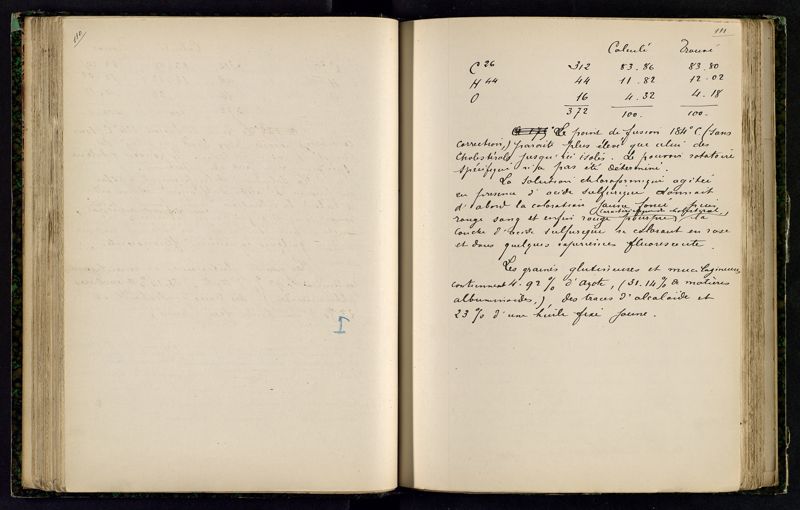 110
111
Calculé Trouvé
C 26 312 83.86 83.80
H 44 44 11.82 12.02
O 16 4.32 4.18
372 100. 100.
Le point de fusion 184° C (sans
correction,) parait plus élevé que celui des
Cholestérols jusqu'ici isolés. Le pouvoir rotatoire
spécifique n'a pas été déterminé.
La solution chloroformique agitée
en presence d'acide sulfurique donnait
d'abord la coloration jaune foncé puis
rouge sang et enfin rouge pourpre, la
couche d'acide sulfurique se colorant en rose
et dans quelques expériences fluorescente.
Les graines glutineuses et mucilagineuses
contiennent 4.92 % d'azote, (31.14 % de matières
albuminoides,), des traces d'alcaloïde et
23 % d'une huile fixe jaune.
I